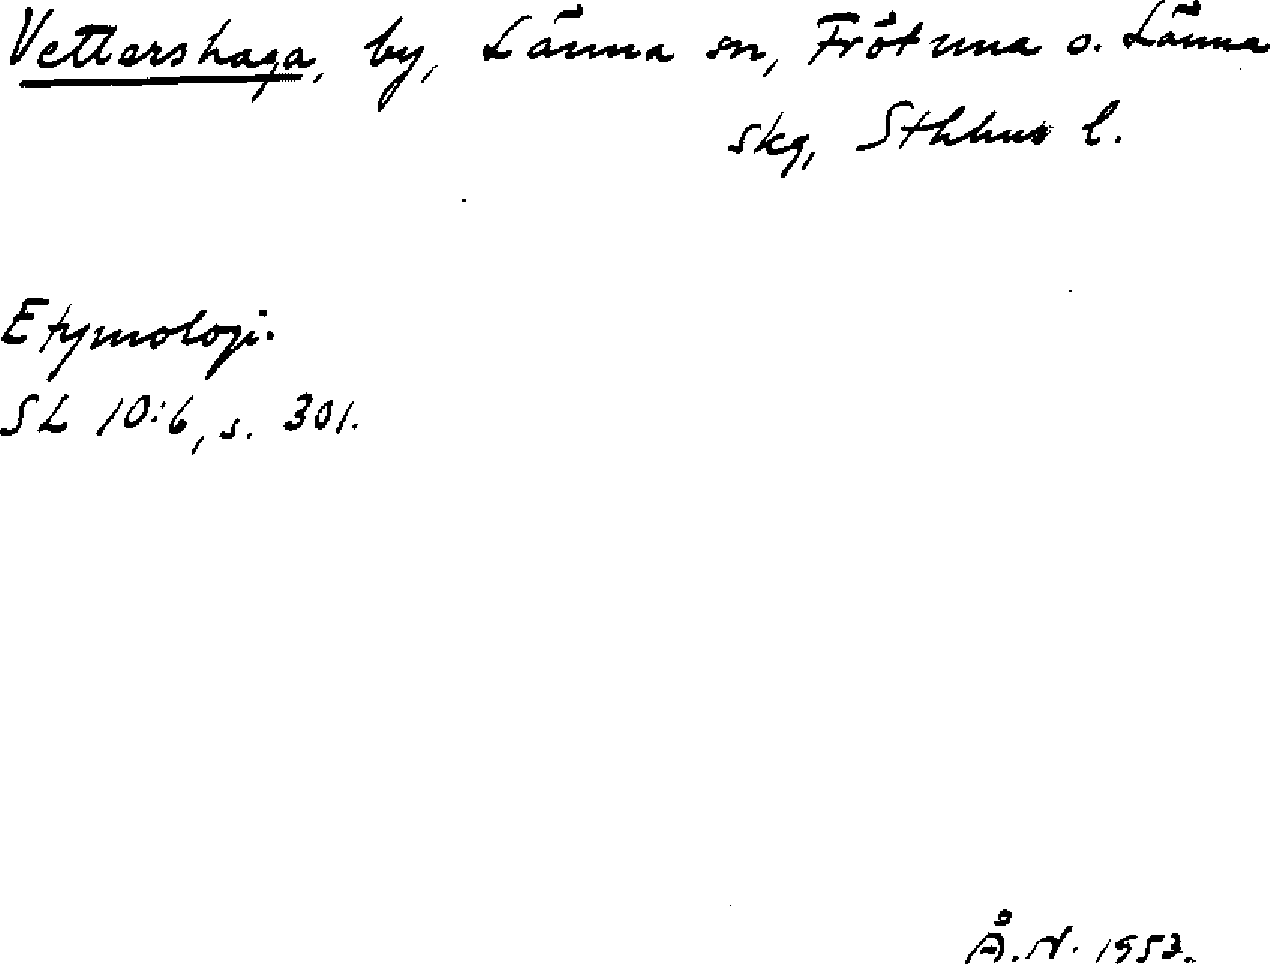 Vettershaga, by, Länna sn, Frötuna o. Länna
skg, Sthlms l.
Etymologi.
SL 10:6, s. 301.
Å. N. 1953.